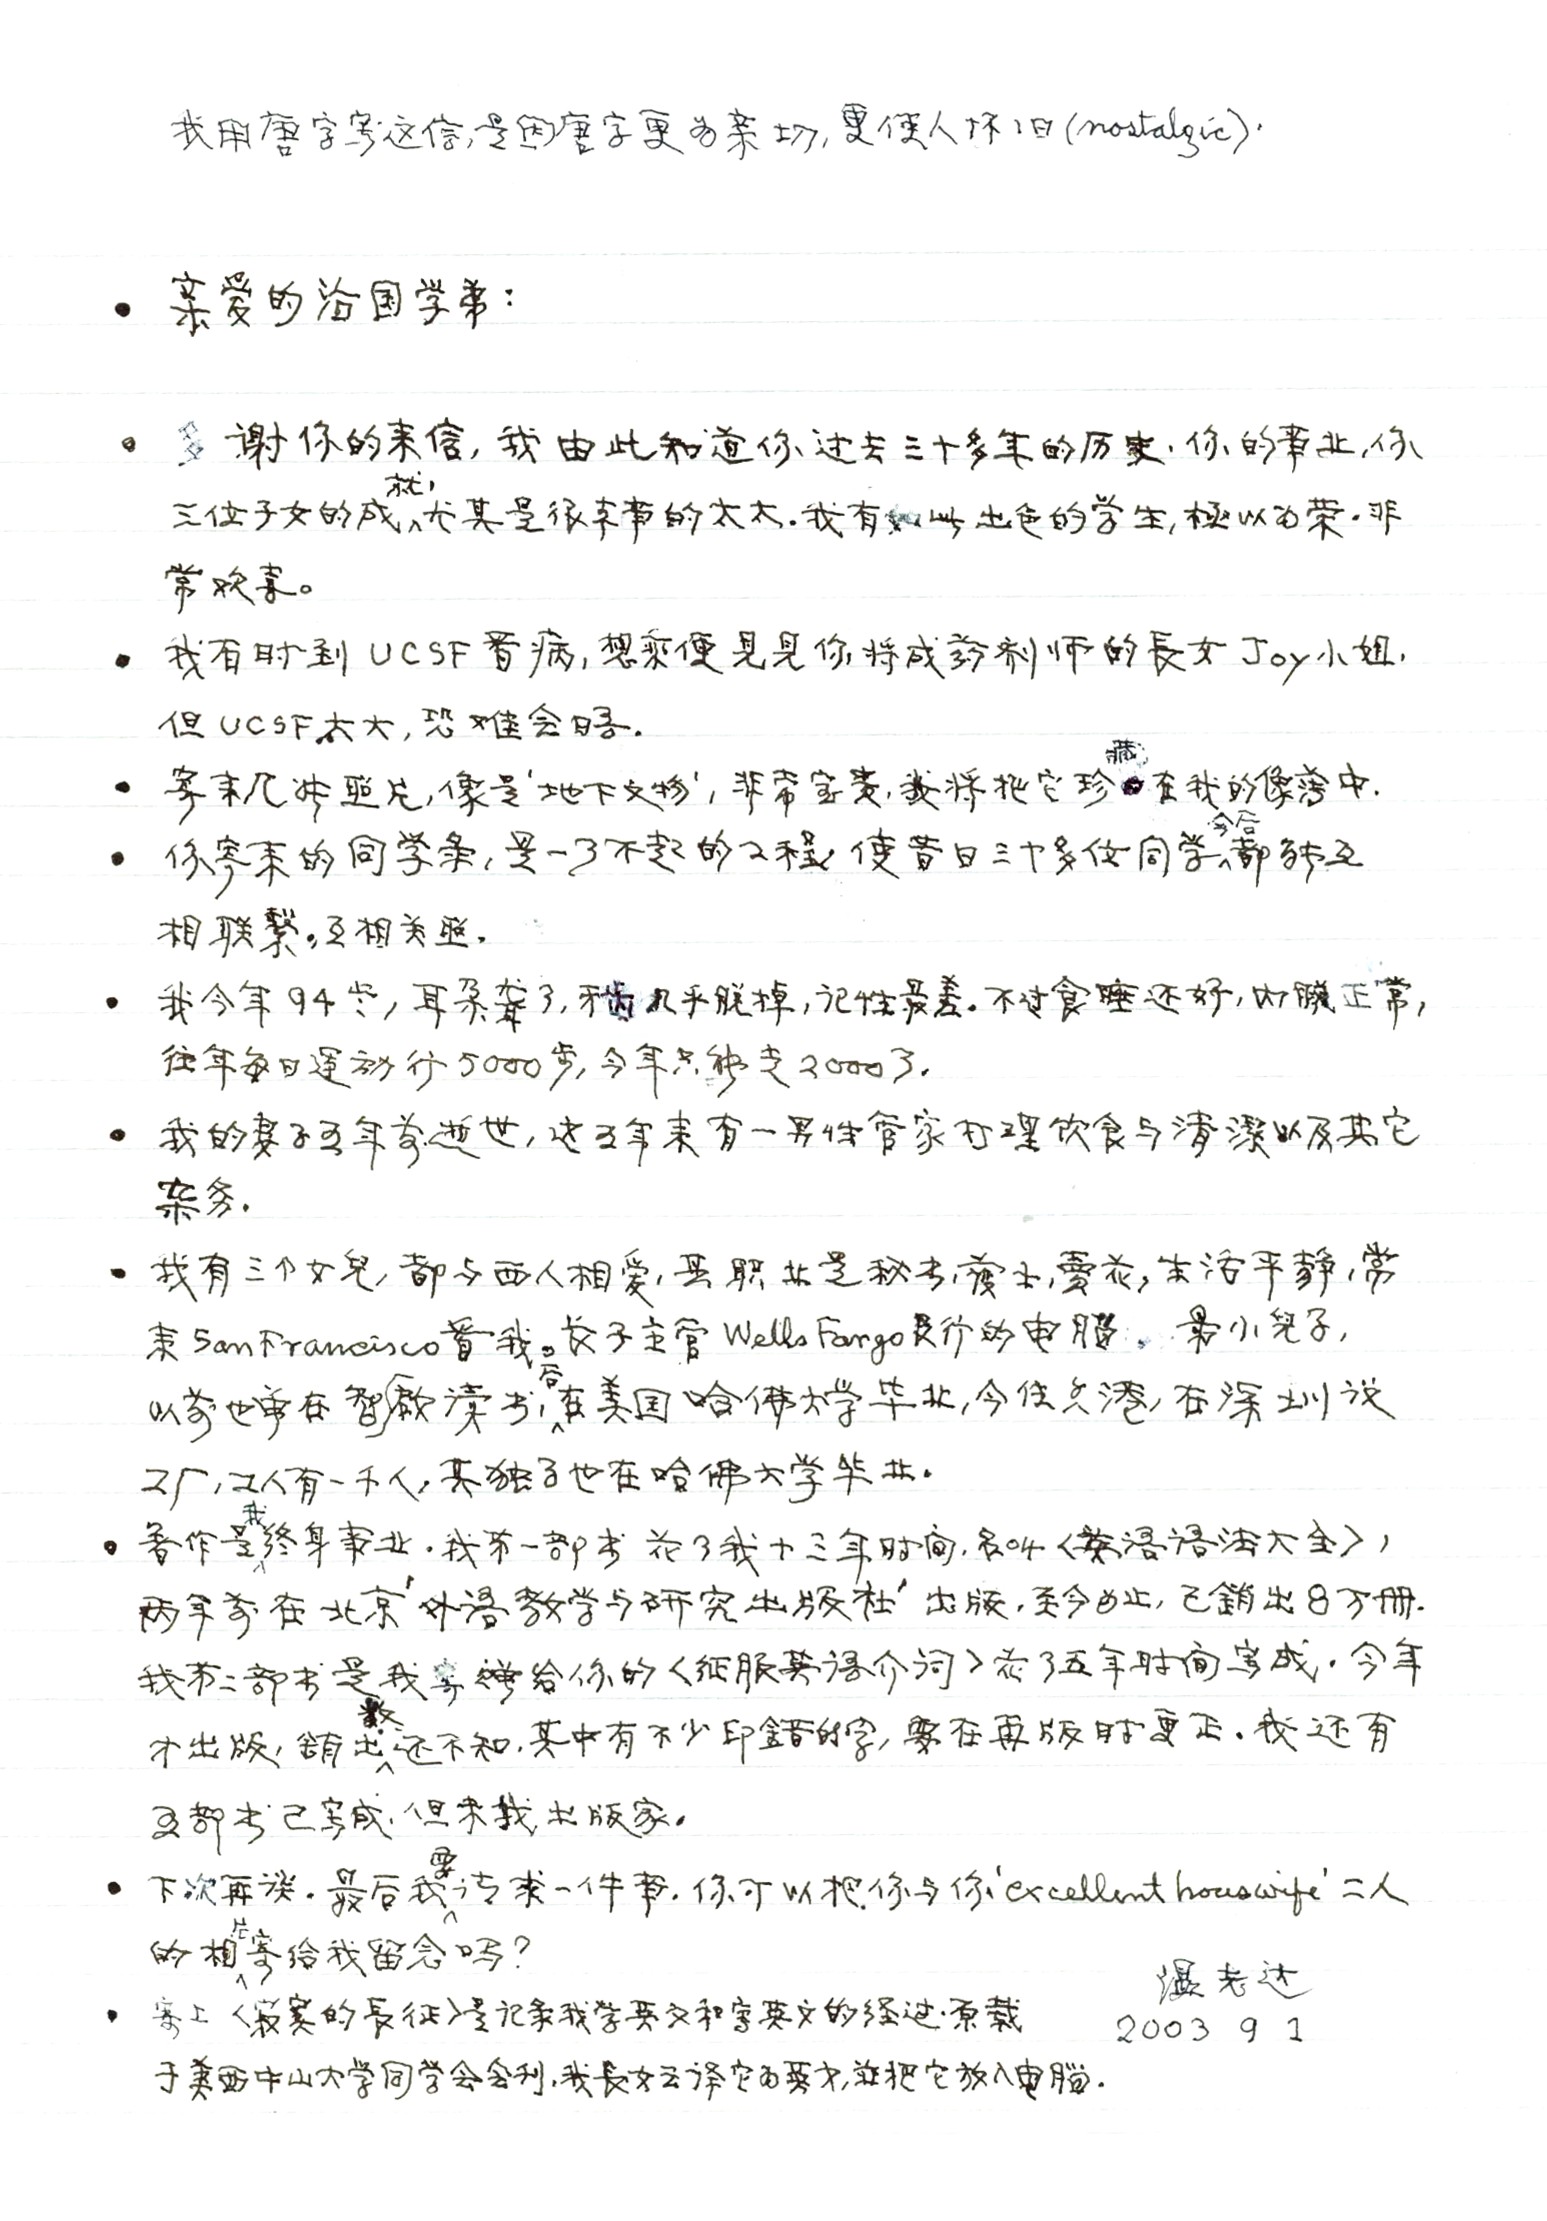 我用唐字写这信,是因唐字更为亲切,更使人怀旧(nostalgic).
• 亲爱的治国学弟:
• 多谢你的来信,我由此知道你过去三十多年的历史.你的事业,你
三位子女的成就,尤其是很本事的太太.我有如此出色的学生,極以为荣.非
常欢喜。
• 我有时到UCSF看病,想乘便見見你将成药剂师的長女Joy小姐,
但UCSF太大,恐难会晤.
• 寄来几张照片,像是'地下文物',非常宝贵,我将把它珍藏在我的像簿中.
• 你寄来的同学录,是一了不起的工程,使昔日三十多位同学今后都能互
相联繫。互相关照.
• 我今年94岁,耳朵聋了,牙齿几乎脱掉,记性最差.不过食睡还好,内臟正常,
往年每日運动行5000步,今年只能走2000了.
• 我的妻子五年前逝世,这五年来有一男性管家打理饮食与清潔以及其它
杂务.
• 我有三个女兒,都与西人相爱,其职业是秘书,護士,賣花,生活平静,常
来San Francisco看我。長子主管Wells Fargo銀行的电腦.最小兒子,
以前也曾在智啟读书,后在美国哈佛大学毕业,今住久港,在深圳设
工厂,工人有一千人,其独子也在哈佛大学毕业.
• 著作是我終身事业.我第一部书花了我十三年时间,名叫《英语语法大全》,
两年前在北京'外语教学与研究出版社'出版,至今为止,已銷出8万冊.
我第二部书是我寄赠给你的《征服英语介词》花了五年时间写成.今年
才出版,銷出数还不知,其中有不少印錯的字,要在再版时更正.我还有
五部书已写成,但未找出版家.
• 下次再谈.最后我要请求一件事.你可以把你与你'excellent housewife'二人
的相片寄给我留念吗?
温老达
2003 9 1
• 寄上《寂寞的長征》是记录我学英文和写英文的经过.原载
于美西中山大学同学会会刊,我長女云译它为英文,並把它放入电腦.